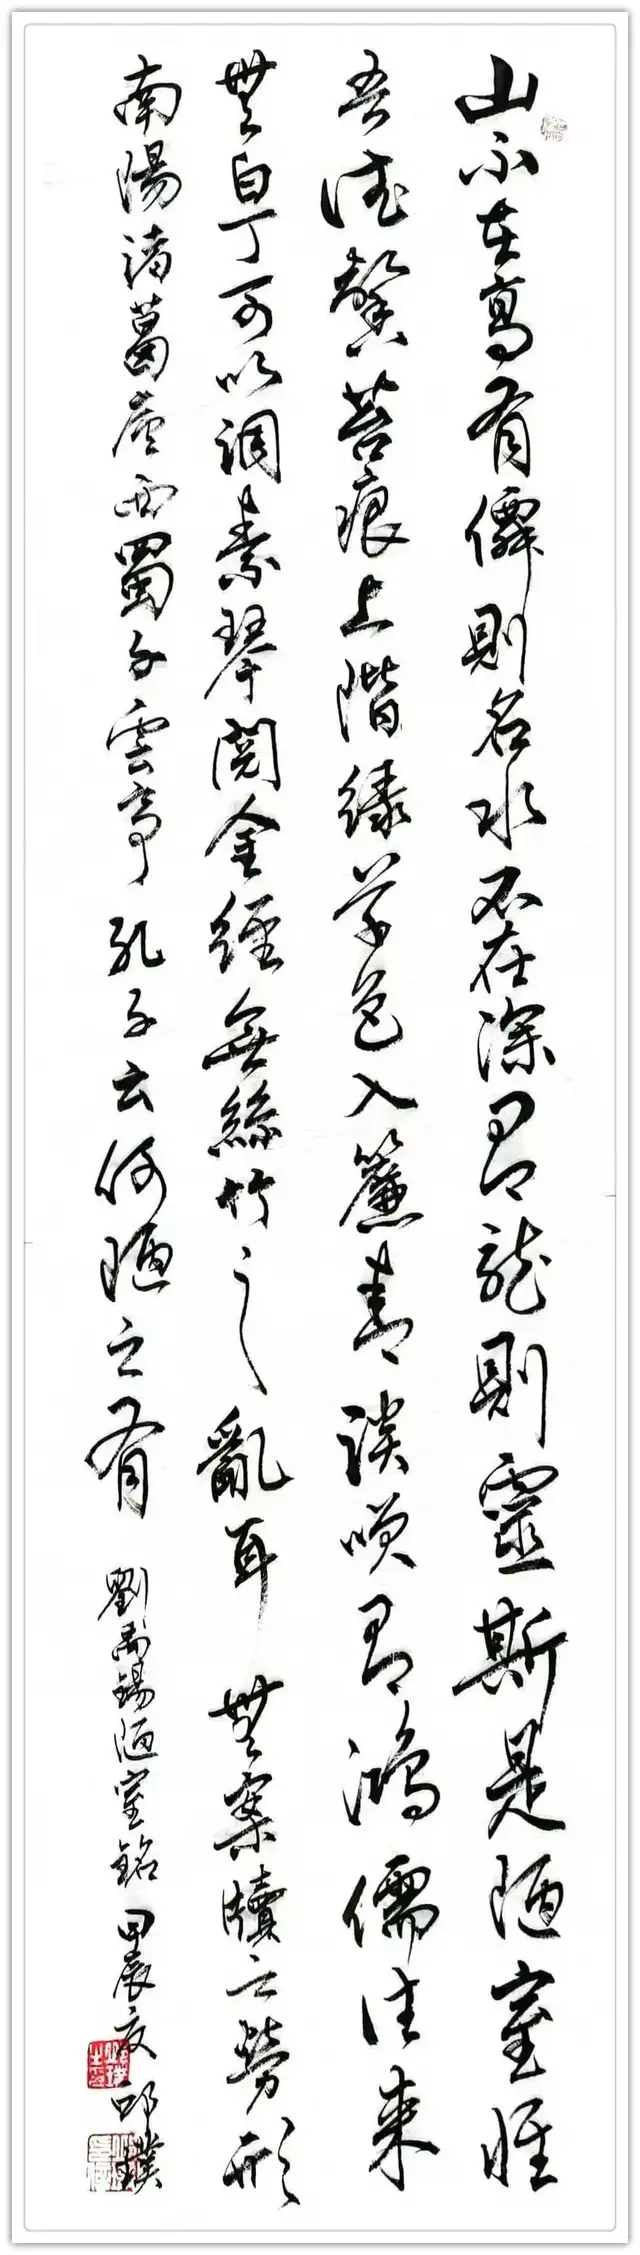 山不在高有僊則名水不在深有龍則靈斯是陋室惟
吾德馨苔痕上階綠草色入簾青談咲有鴻儒往來
無白丁可以調素琴閱金經無絲竹之亂耳無案牘之勞形
南陽諸葛廬西蜀子雲亭孔子云何陋之有 劉禹錫陋室銘 甲辰夏邱璞